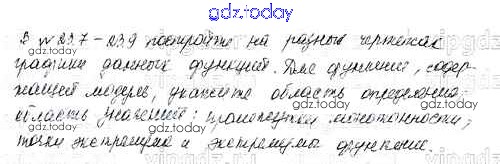 gdz.today
В № 23.7 – 23.9 постройте на разных чертежах
gdz.today
графики данных функций. Для функции, содер-
жащей модуль, укажите область определения
область значений; промежутки монотонности,
точки экстремума и экстремумы функции.
gdz.today